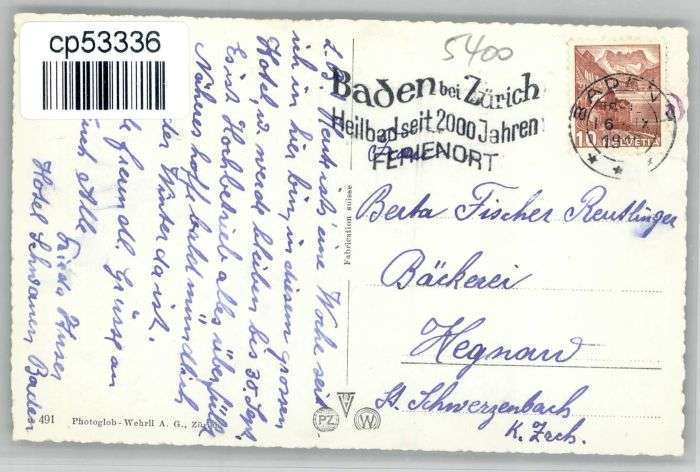 cp53336
5400
Baden bei Zürich
Heilbad seit 2000 Jahren
FERIENORT
BADEN
6
19
10 HELVETIA
Frau
Berta Fischer Reutlinger
Bäckerei
Hegnau
St. Schwerzenbach
K. Zrch.
L. B. Heut ists eine Woche seit
ich in hier bin, in diesem grossen
Hotel, u. werde bleiben bis 30 Sept.
Es ist Hochbetrieb alles überfüllt
Näheres hoff bald mündlich
der Winter da ist.
freundl. Grüsse an
Euch Alle
Huser
Hotel Schwanen Baden
Fabrication suisse
491 Photoglob-Wehrli A. G., Zü
PZ W